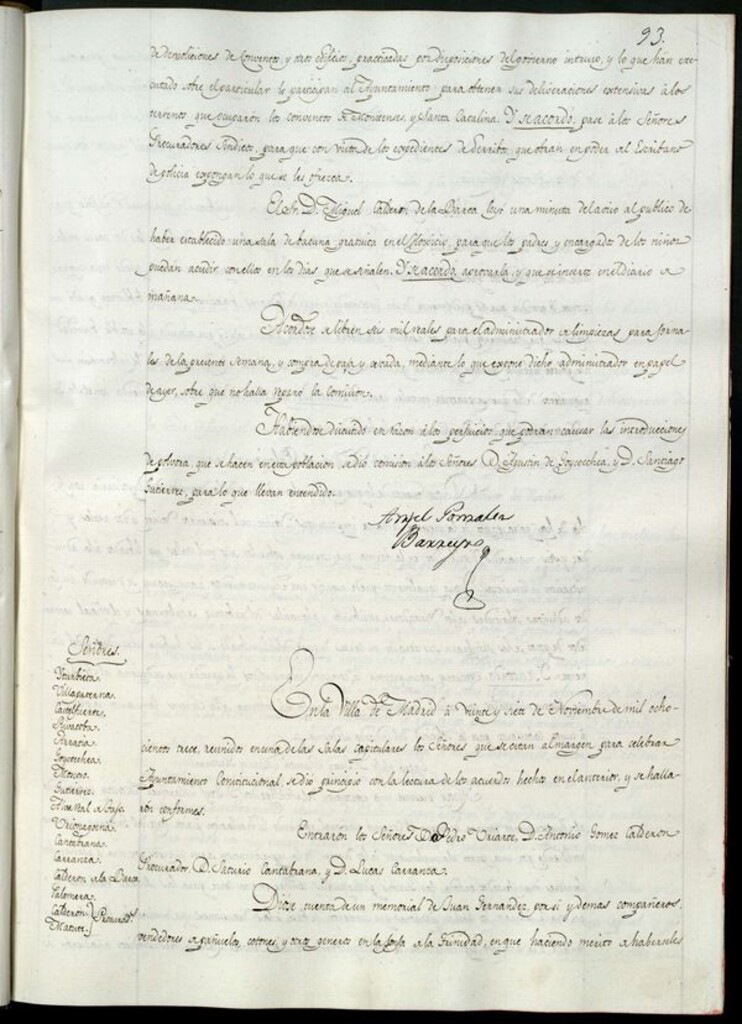 93.
de demoliciones de Conventos, y otros edificios, practicadas por disposiciones del govierno intruso, y lo que han exe-
cutado sobre el particular lo participan al Ayuntamiento para obtener sus deliveraciones extensivas à los
terrenos que ocuparon los conventos de Mostenses, y Santa Catalina. Y se acordó, pase à los Señores
Procuradores Sindicos, para que con vista de los expedientes de derribos que obran en poder del Escribano
de policia expongan lo que se les ofrezca.
El Sr. D. Miguel Calderon de la Barca leyó una minuta del aviso al publico de
haber establecido una sala de bacuna gratuita en el Hospicio, para que los padres y encargados de los niños
puedan acudir con ellos en los dias que se señalen. Y se acordó aprovarla, y que se inserte en el diario de
mañana.
Acordose se libren seis mil reales para el administrador de limpiezas para jorna-
les de la presente semana, y compra de paja y cevada, mediante lo que expone dicho administrador en papel
de ayer, sobre que no halla reparo la Comision.
Habiendose discutido en razon à los perjuicios que podrian causar las introducciones
de polvora, que se hacen en esta poblacion, se dió comision à los Señores D. Agustin de Goycoechea, y D. Santiago
Gutierrez, para lo que llevan entendido.
Angel Gonzalez
Barreyro
Señores.
Yturbieta.
Villapaterna.
Castelfuerte.
Arratia.
Goycochea.
Gutierrez.
Urionagoena.
Cantabrana.
Carranza.
Calderon de la Barca
Palomera.
Calderon.
Matute. } Procurads.
En la Villa de Madrid à veinte y siete de Noviembre de mil ocho-
cientos trece, reunidos en una de las Salas capitulares los Señores que se citan al margen para celebrar
Ayuntamiento Constitucional, se dió principio con la lectura de los acuerdos hechos en el anterior, y se halla-
ron conformes.
Entraron los Señores D. Pedro Uriarte, D. Antonio Gomez Calderon
Procurador, D. Saturio Cantabrana, y D. Lucas Carranza.
Diose cuenta de un memorial de Juan Fernandez, por si y demas compañeros,
vendedores de pañuelos, cotones, y otros generos en la lonja de la Trinidad, en que haciendo merito de haberseles